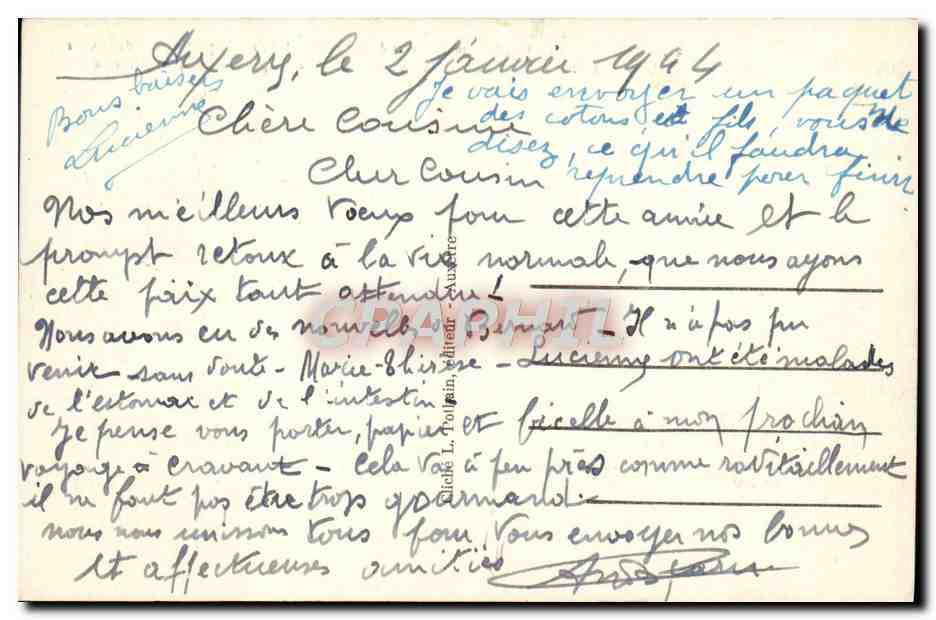 Auxerre, le 2 janvier 1944
Bons baisers
Lucienne
Je vais envoyer un paquet
des cotons et fils, vous me
disez, ce qu'il faudra
reprendre pour finir
Chère Cousine
Cher Cousin
Nos meilleurs voeux pour cette année et le
prompt retour à la vie normale, que nous ayons
cette paix tant attendue !
Nous avons eu des nouvelles de Bernard - Il n'a pas pu
venir sans doute - Marie-Thérèse - Lucienne ont été malades
de l'estomac et de l'intestin
Je pense vous porter, papier et ficelle à mon prochain
voyage à Cravant - Cela va à peu près comme ravitaillement
il ne faut pas être trop gourmand -
nous nous unissons tous pour vous envoyer nos bonnes
et affectueuses amitiés
Cliché L. Tolbain, éditeur - Auxerre
CPAPHIL